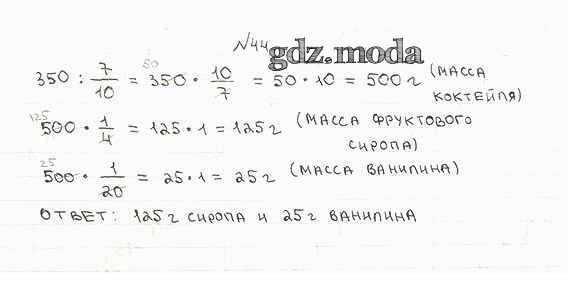 №44
gdz.moda
50
350 : 7/10 = 350 · 10/7 = 50 · 10 = 500 г (МАССА
КОКТЕЙЛЯ)
125
500 · 1/4 = 125 · 1 = 125 г (МАССА ФРУКТОВОГО
СИРОПА)
25
500 · 1/20 = 25 · 1 = 25 г (МАССА ВАНИЛИНА)
ОТВЕТ: 125 г СИРОПА И 25 г ВАНИЛИНА